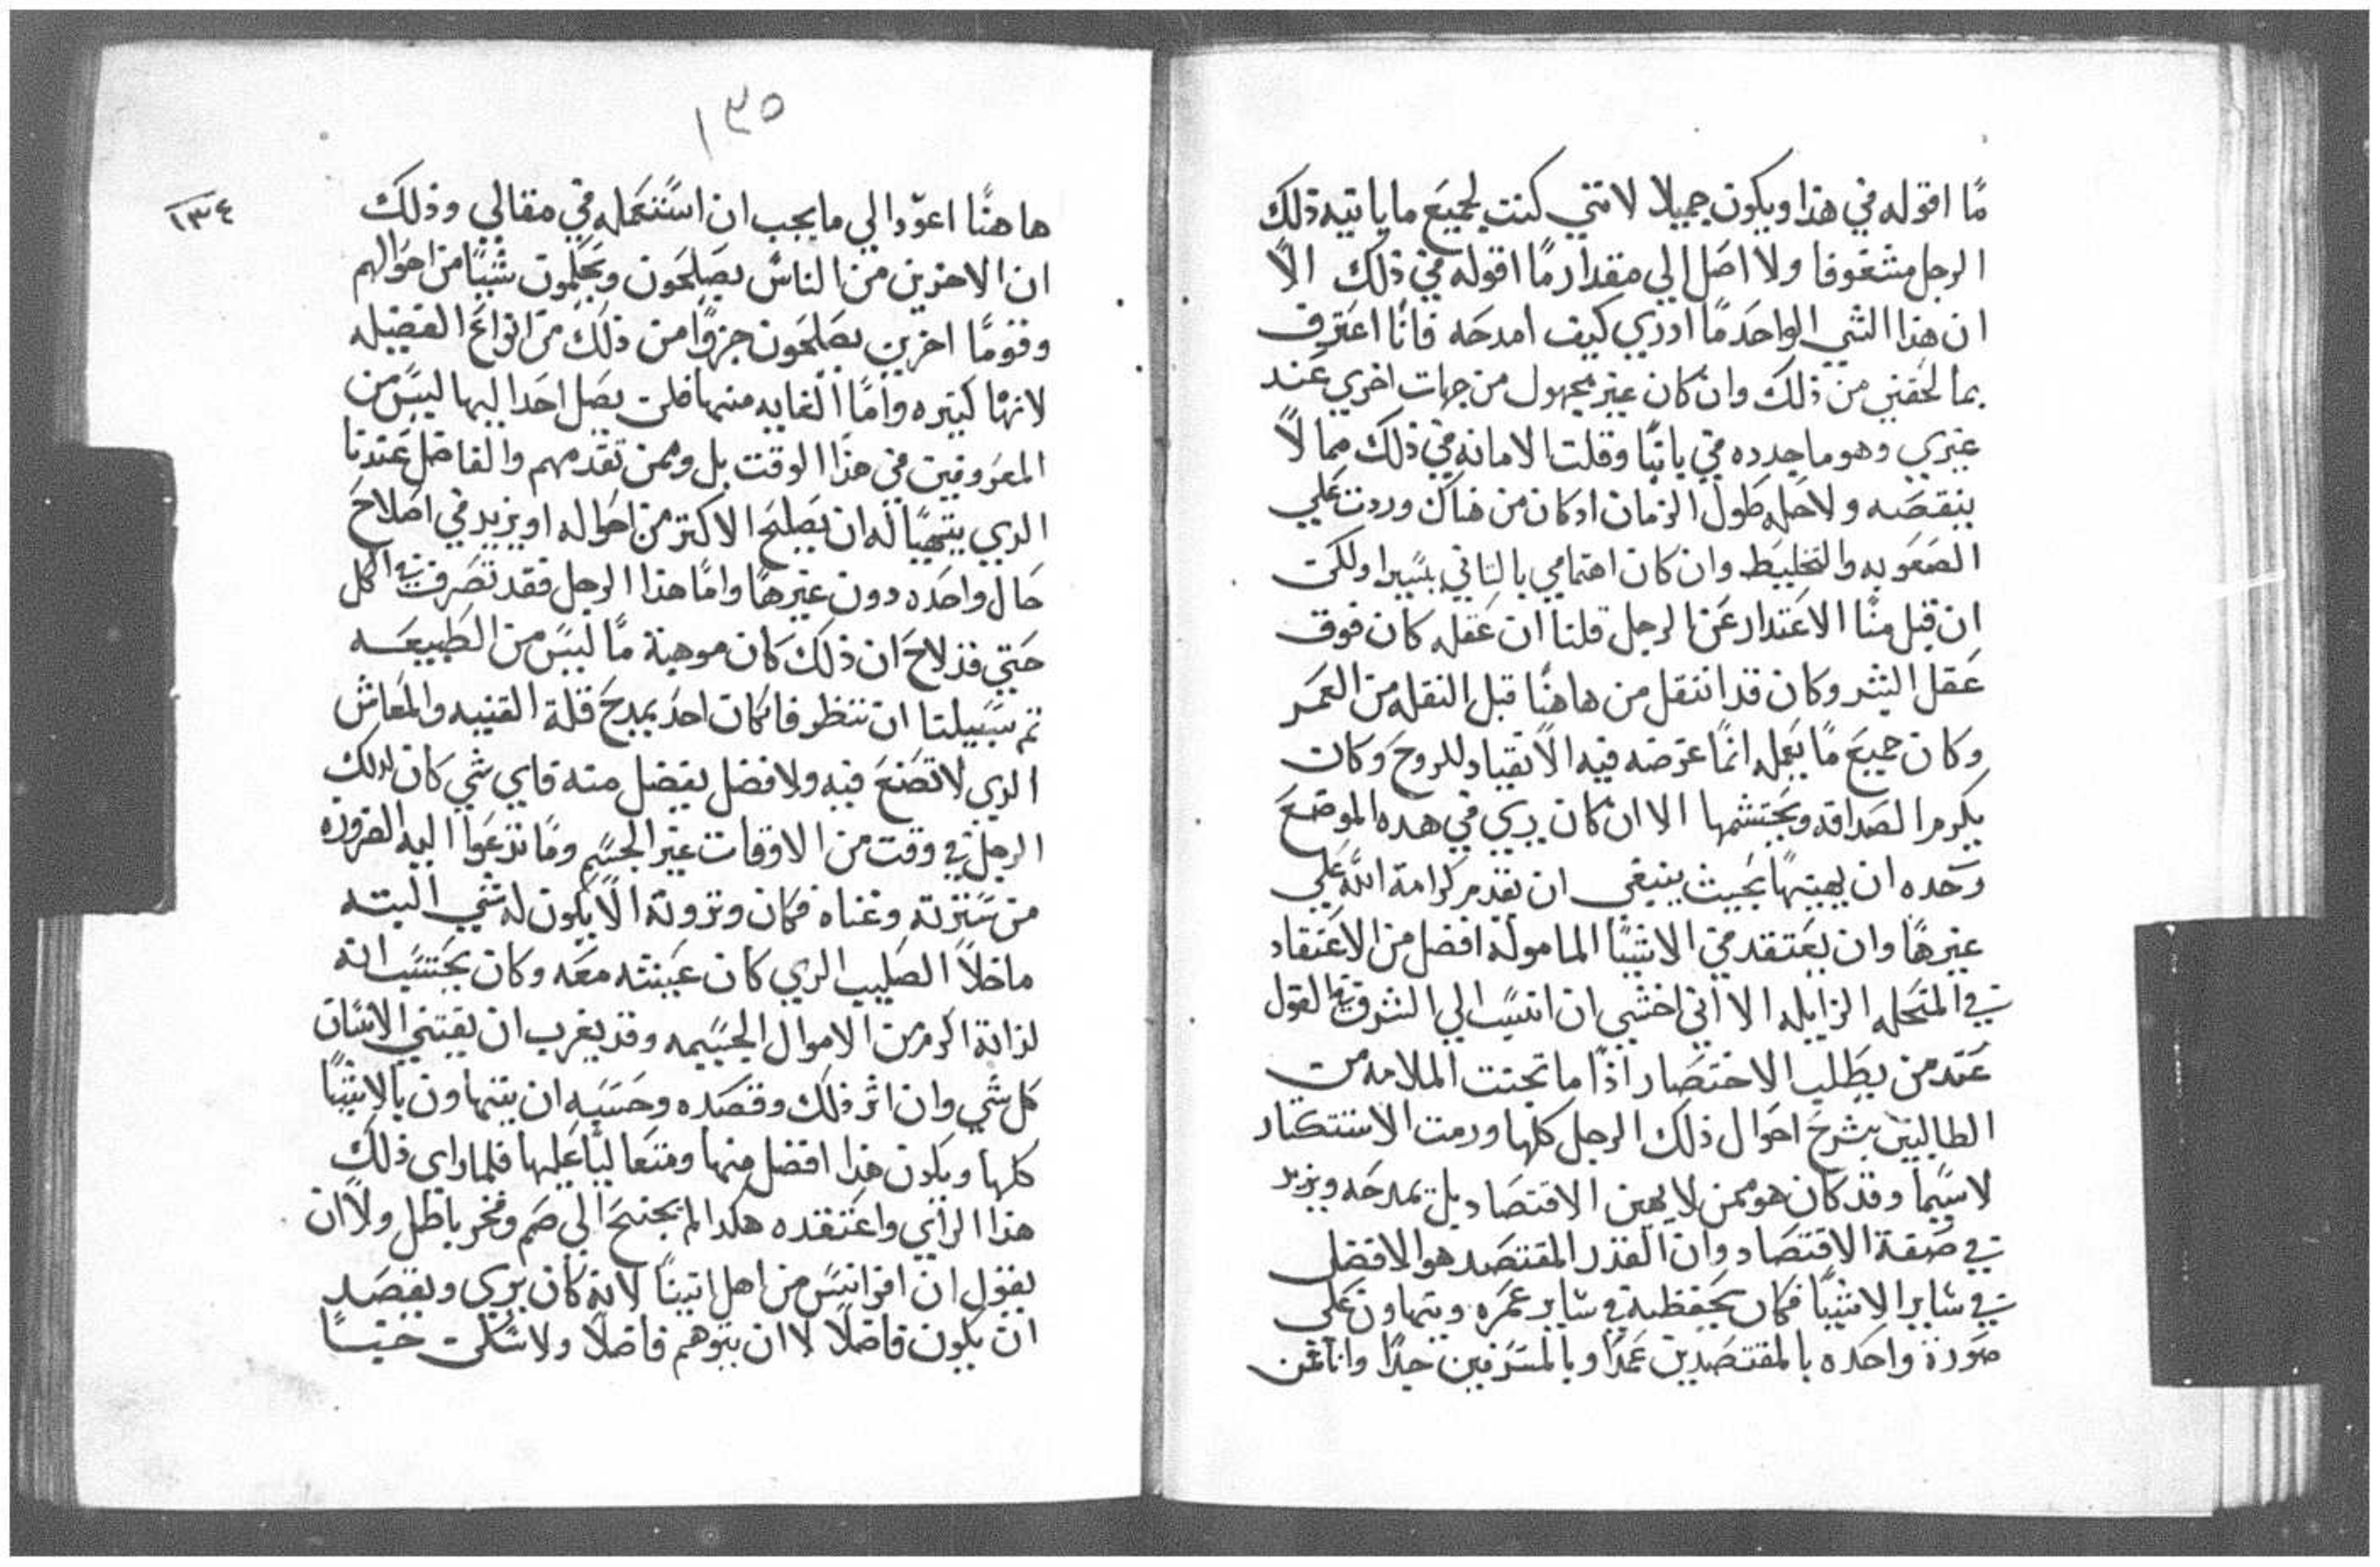 ما اقوله في هذا ويكون جميلا لانني كنت لجميع ما ياتيه ذلك
الرجل مشغوفا ولا اصل الي مقدار ما اقوله في ذلك الا
ان هذا الشي الواحد ما ادري كيف امدحه فانا اعترف
بما لحقني من ذلك وان كان غير مجهول من جهات اخري عند
غيري وهو ما جدده في ياتنا وقلت الامانه في ذلك مما لا
ينقصه ولا حله طول الزمان اد كان من هناك وردت علي
الصعوبه والتخليط وان كان اهتمامي بالتاني يسيرا ولكن
ان قبل منا الاعتدار عن الرجل قلنا ان عقله كان فوق
عقل البشر وكان قد انتقل من هاهنا قبل النقله من العمر
وكان جميع ما يعمله انما غرضه فيه الانقياد للروح وكان
يكرم الصداقه ويحتشمها الا ان كان يري في هده الموضع
وحده ان يهينها بحيث ينبغي ان تقدم كرامة الله علي
غيرها وان يعتقد في الاشيا الماموله افضل من الاعتقاد
في المتحله الزايله الا اني اخشي ان انسب الي الشرف في القول
عند من يطلب الاختصار اذا ما تجنت الملامه من
الطالبين بشرح احوال ذلك الرجل كلها ورمت الاستكتار
لاسيما وقد كان هو ممن لا يهين الاقتصاد بل يمدحه ويزيد
في صفة الاقتصاد وان القدر المقتصد هو الافضل
في ساير الاشيا فكان يحفظه في ساير عمره ويتهاون علي
صورة واحده بالمقتصدين عمدا وبالمسرفين جدا وانا من
١٣٥
١٣٤
هاهنا اعود الي ما يجب ان استعمله في مقالي وذلك
ان الاخرين من الناس يصلحون ويحلمون شيا من احوالهم
وقوما اخرين يصلحون جزوا من ذلك من انواع الفضيله
لانها كتيره واما الغايه منها فلن يصل احدا اليها ليس من
المعروفين في هذا الوقت بل وممن تقدمهم والفاضل عندنا
الدي يتهيا له ان يصلح الاكتر من احواله او يزيد في اصلاح
حال واحده دون غيرها واما هذا الرجل فقد تصرف في الكل
حتي قد لاح ان ذلك كان موهبة ما ليس من الطبيعه
تم سبيلنا ان ننظر فان كان احد يمدح قلة القنيه والمعاش
الدي لا تصنع فيه ولا فضل يفضل منه فاي شي كان لدلك
الرجل في وقت من الاوقات غير الجسم وما تدعوا اليه الضروره
من سترته وغناه فكان وتروته الا يكون له شي البته
ماخلا الصليب الدي كان عيشته معه وكان يحتسب انه
لذاته اكرم من الاموال الجسيمه وقد يغرب ان يقتني الانسان
كل شي وان اثر ذلك وقصده وحسبه ان يتهاون بالاشيا
كلها ويكون هذا افضل منها ومتعاليا عليها فلما راى ذلك
هذا الراي واعتقده هكدا لم يجنح الي صم وفخر باطل ولا ان
يقول ان اقراتيس من اهل اتينا لانه كان يري ويقصد
ان يكون فاضلا لا ان يتوهم فاضلا ولا سكن